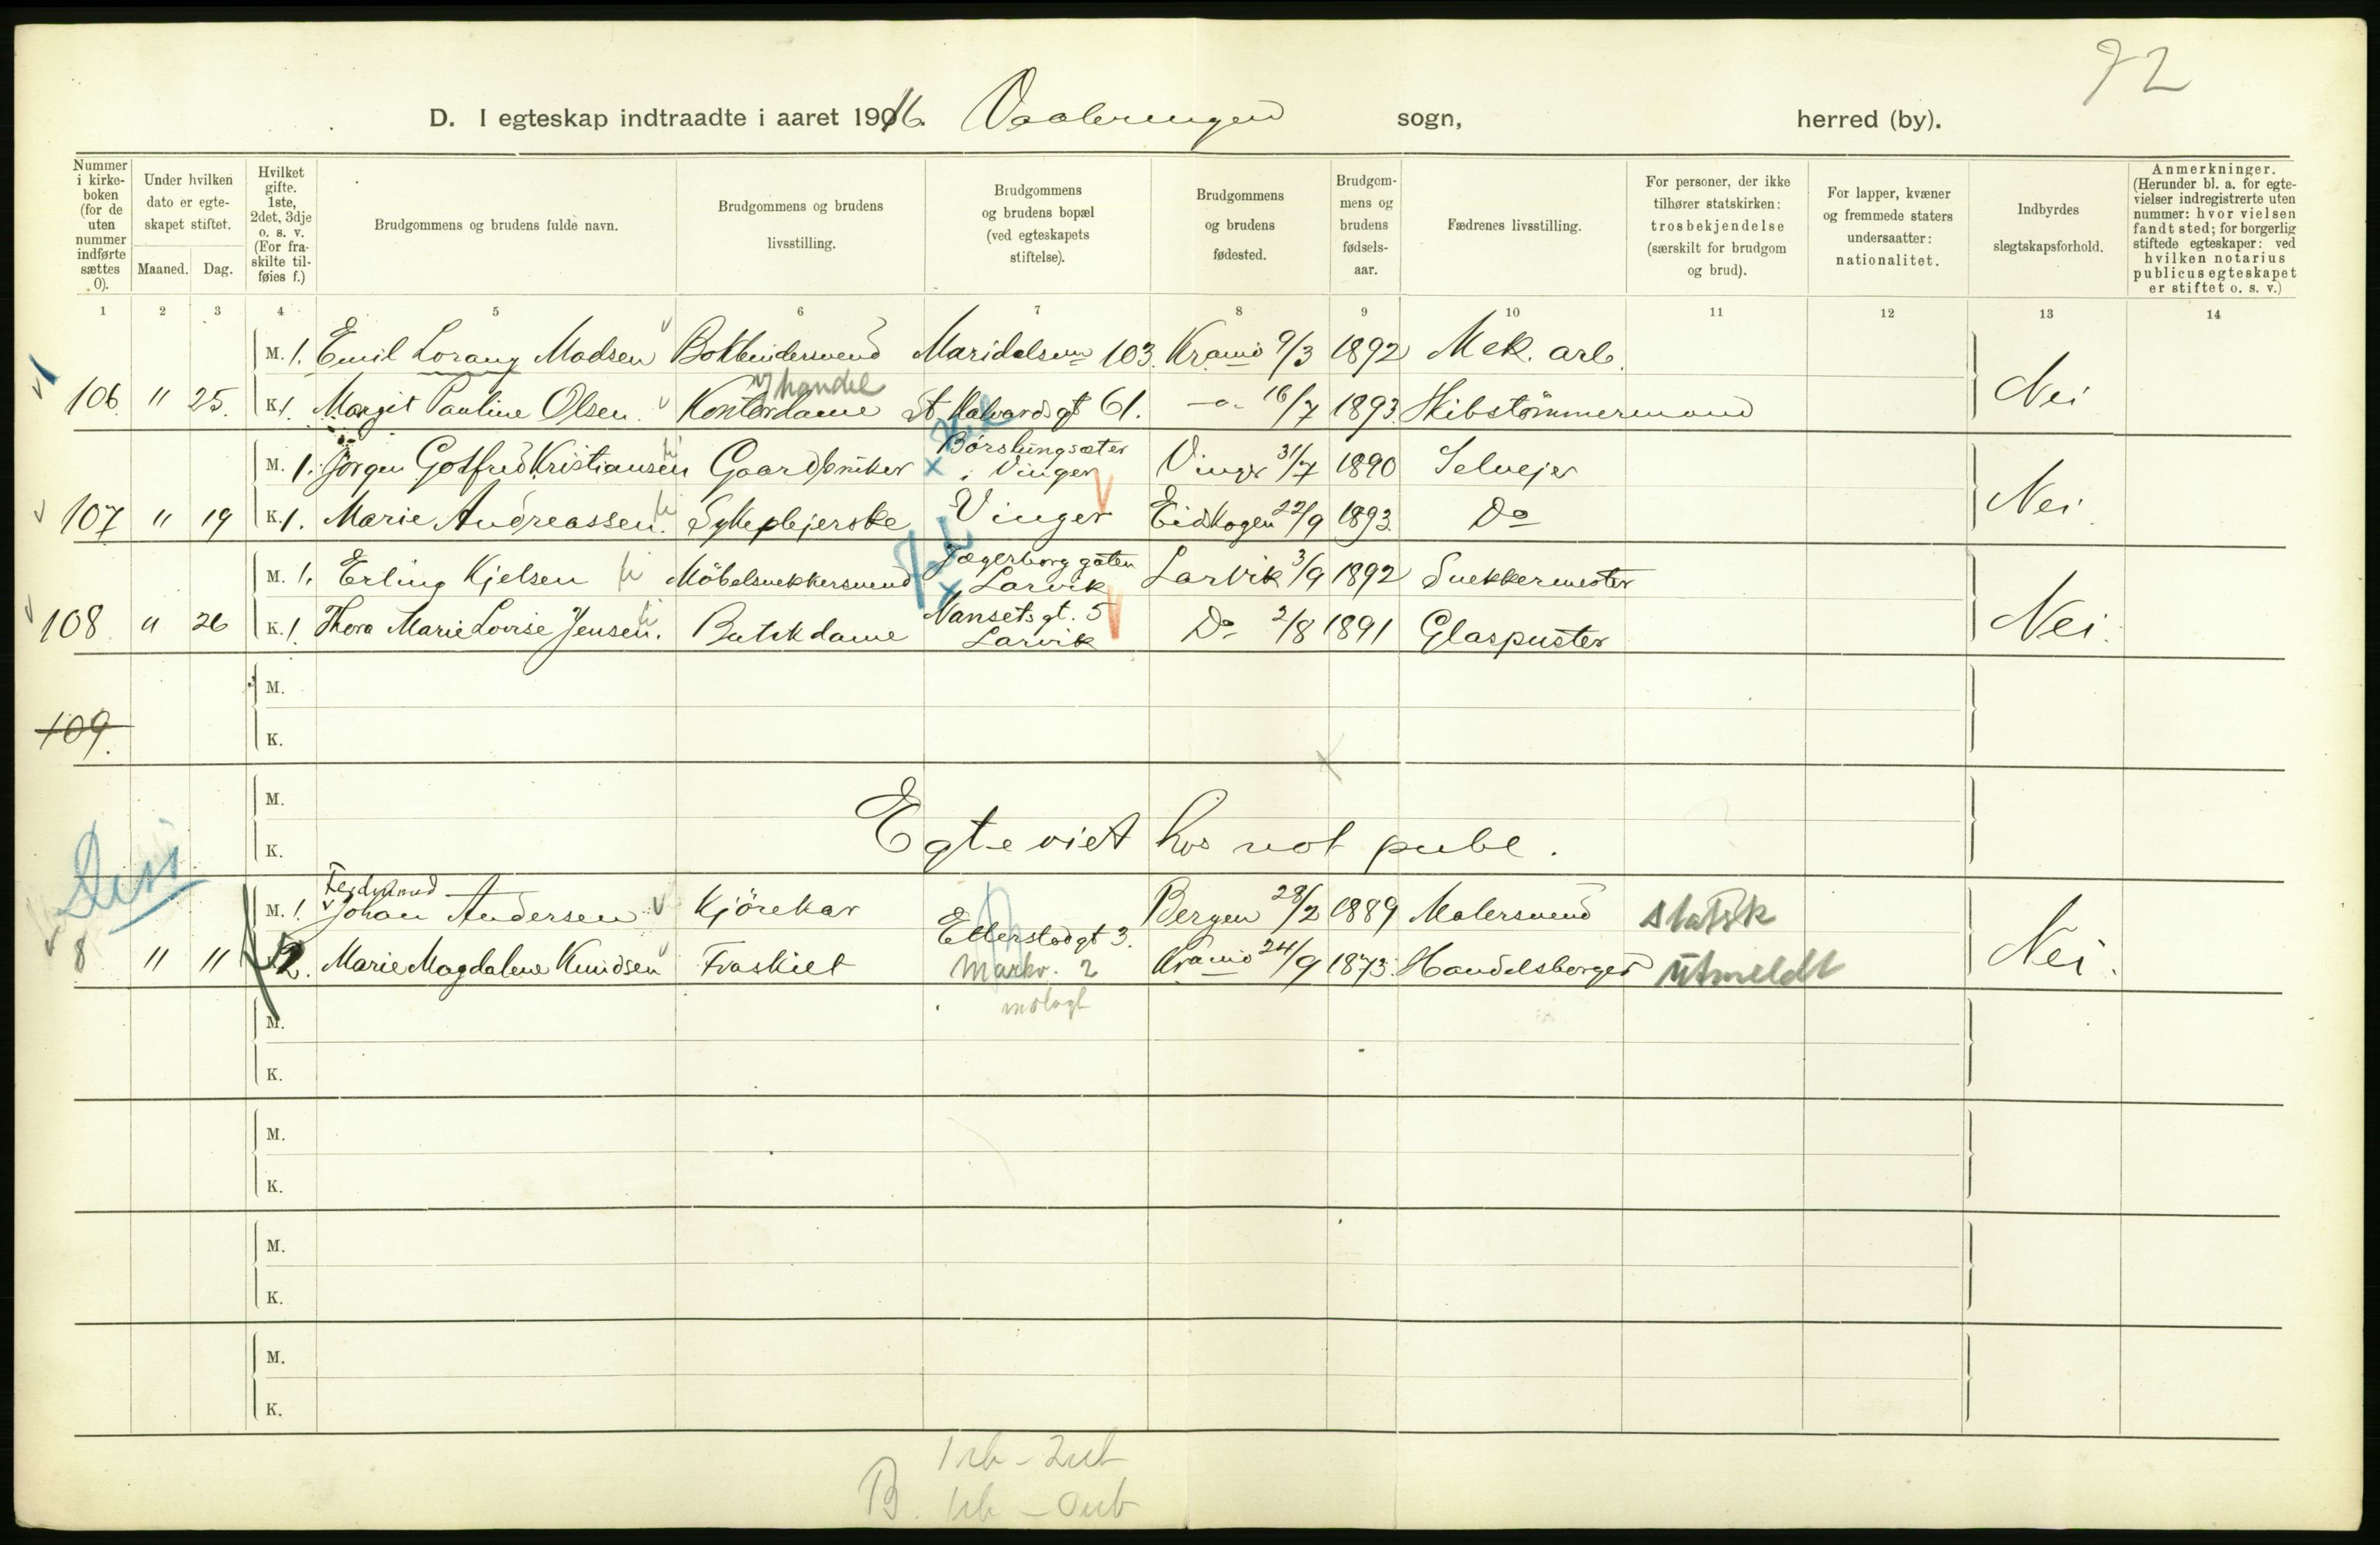 72
D. I egteskap indtraadte i aaret 1916. Vaalerengen sogn, herred (by).
Nummer i kirkeboken (for de uten nummer indførte sættes 0).
Under hvilken dato er egteskapet stiftet.
Maaned. Dag.
Hvilket gifte. 1ste, 2det, 3dje o. s. v. (For fraskilte tilføies f.)
Brudgommens og brudens fulde navn.
Brudgommens og brudens livsstilling.
Brudgommens og brudens bopæl (ved egteskapets stiftelse).
Brudgommens og brudens fødested.
Brudgommens og brudens fødselsaar.
Fædrenes livsstilling.
For personer, der ikke tilhører statskirken: trosbekjendelse (særskilt for brudgom og brud).
For lapper, kvæner og fremmede staters undersaatter: nationalitet.
Indbyrdes slegtskapsforhold.
Anmerkninger. (Herunder bl. a. for egtevielser indregistrerte uten nummer: hvor vielsen fandt sted; for borgerlig stiftede egteskaper: ved hvilken notarius publicus egteskapet er stiftet o. s. v.)
1 2 3 4 5 6 7 8 9 10 11 12 13 14
M. 1. Emil Lorang Madsen Bokbindersvend Maridalsvn 103. Kr.ania 9/3 1892 Mek. arb.
handel
106. " 25. K 1. Margit Pauline Olsen. Kontordame St Halvardsgt 61. —o— 16/7 1893. Skibstömmermand Nei
M. 1. Jörgen Gotfred Kristiansen Gaardbruker Börslungsæter i Vinger Vinger 31/7 1890 Selveier
107 " 19 K. 1. Marie Andreassen. Sykepleierske Vinger Eidskogen 22/9 1893. Do Nei.
M. 1. Erling Kjelsen Möbelsnekkersvend Jægerborggaten Larvik Larvik 3/9 1892 Snekkermester
108 " 26 K. 1. Thora Marie Lovise Jensen. Butikdame Nansetsgt. 5 Larvik Do 2/8 1891 Glaspuster Nei.
M.
109.
K.
M.
K. Egteviet hos not publ.
Ferdinand
M. 1. Johan Andersen Kjörekar Etterstadgt 3. Bergen 28/2 1889 Malersvend statsk
8 " 11 2. Marie Magdalene Knudsen Fraskilt Markv. 2 Kr.ania 24/9 1873. Handelsborger utmeldt Nei.
M.
K.
M.
K.
M.
K.
M.
K.
B.